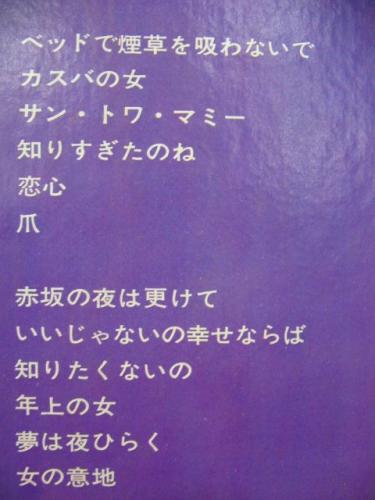 ベッドで煙草を吸わないで
カスバの女
サン・トワ・マミー
知りすぎたのね
恋心
爪
赤坂の夜は更けて
いいじゃないの幸せならば
知りたくないの
年上の女
夢は夜ひらく
女の意地